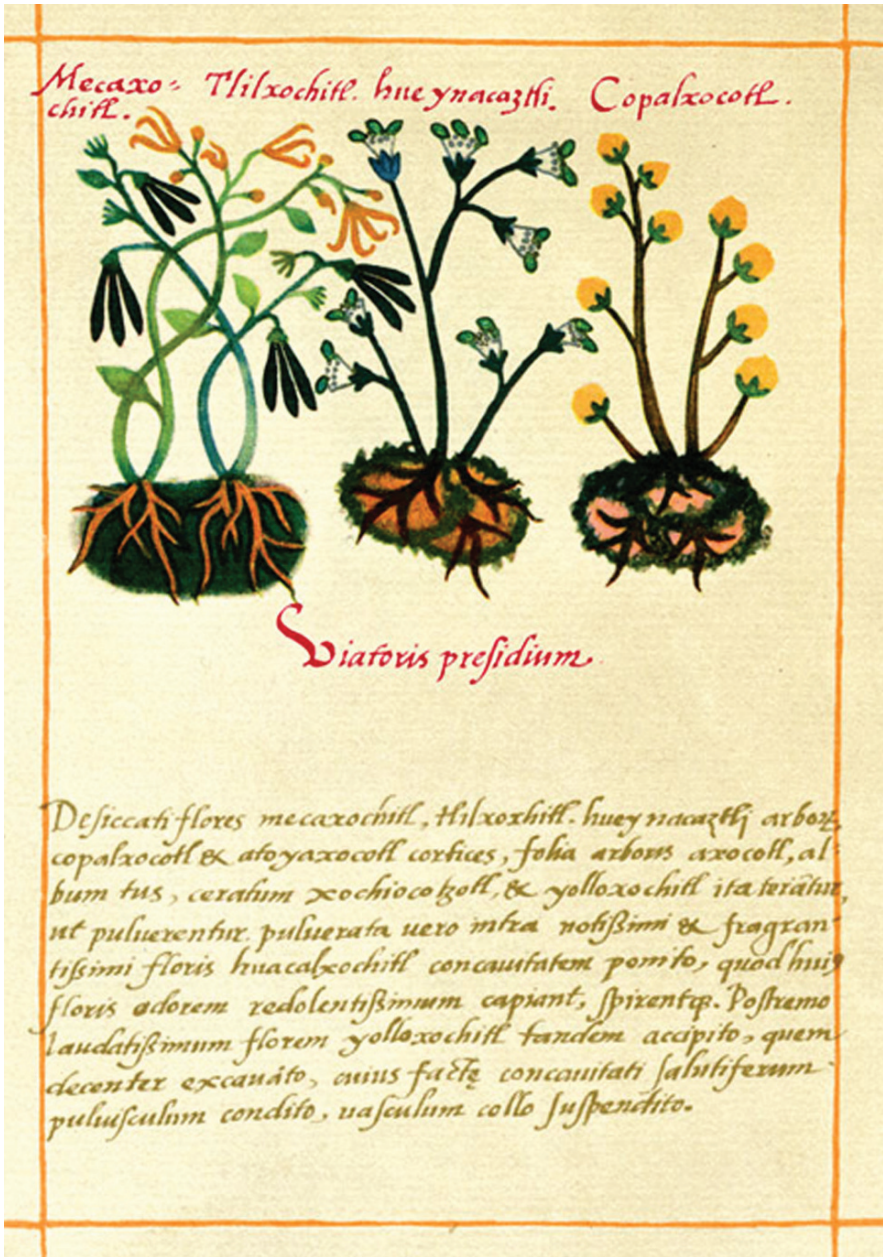 Mecaxo-
chitl.
Tlilxochitl. hueynacaztli. Copalxocotl.
Viatoris presidium.
Desiccati flores mecaxochitl, tlilxoxhitl. huey nacaztli arborū,
copalxocotl & atoyaxocotl cortices, folia arboris axocotl, al-
bum tus, ceratum xochiocotzotl, & yolloxochitl ita terātur,
ut puluerentur. puluerata uero intra notißimi & fragran
tißimi floris huacalxochitl concauitatem ponito, quod hui9
floris odorem redolentißimum capiant, spirentqꝫ. Postremo
laudatißimum florem yolloxochitl tandem accipito, quem
decenter excauāto, cuius factę concauitati salutiferum
puluisculum condito, uasculum collo suspendito.